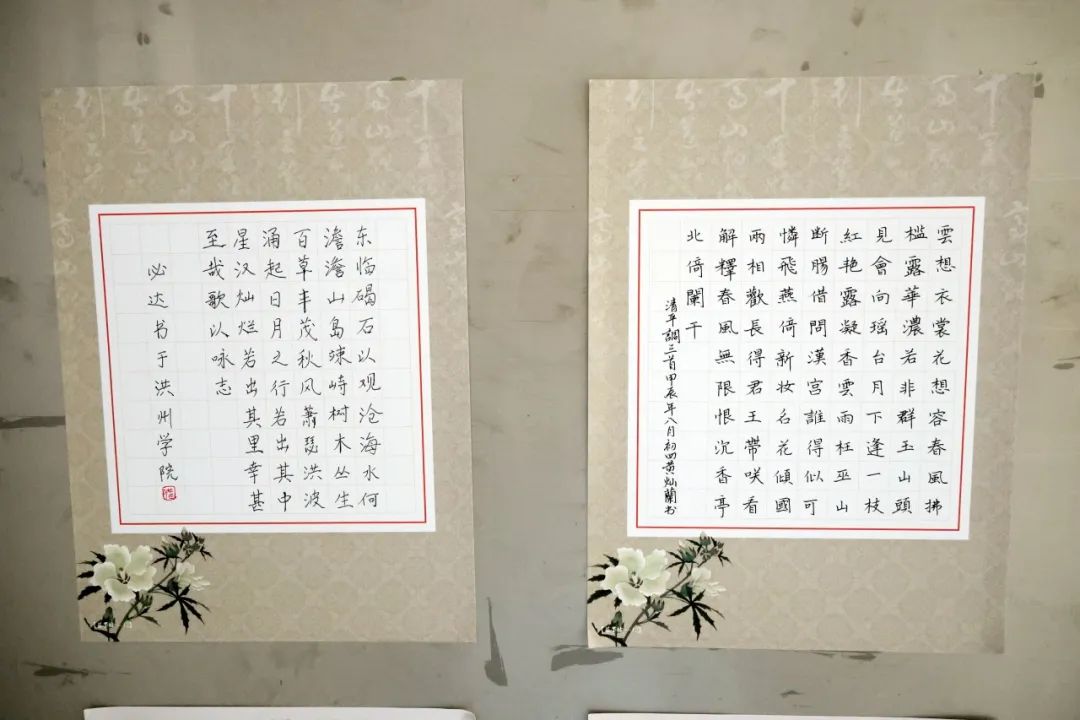 东临碣石以观沧海水何
澹澹山岛竦峙树木丛生
百草丰茂秋风萧瑟洪波
涌起日月之行若出其中
星汉灿烂若出其里幸甚
至哉歌以咏志
必达书于洪州学院
雲想衣裳花想容春風拂
槛露華濃若非群玉山頭
見會向瑶台月下逢一枝
紅艳露凝香雲雨枉巫山
断腸借問漢宮誰得似可
憐飛燕倚新妆名花傾國
兩相歡長得君王帶咲看
解釋春風無限恨沉香亭
北倚闌干
清平調三首甲辰年八月初四黄灿蘭书